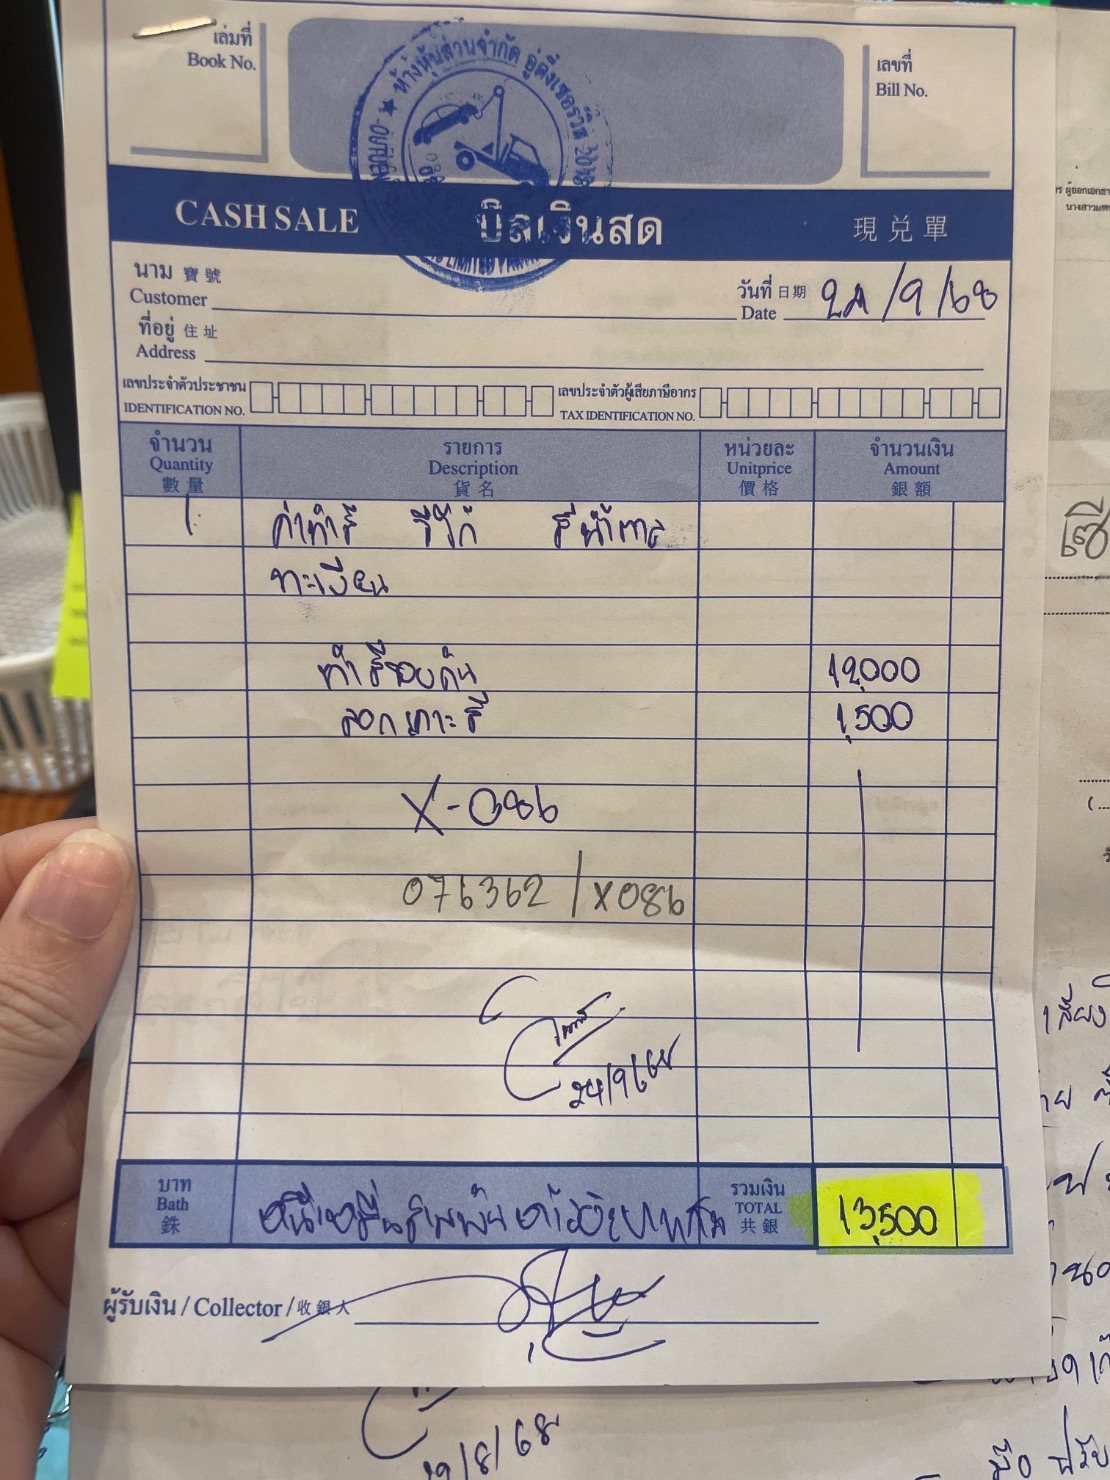 เล่มที่
Book No.
ห้างหุ้นส่วนจำกัด อู่ดิ่งเซอร์วิส 2018
เลขที่
Bill No.
CASH SALE บิลเงินสด 現兌單
นาม 寶號
Customer
วันที่ 日期
Date 24/9/68
ที่อยู่ 住址
Address
เลขประจำตัวประชาชน
IDENTIFICATION NO.
เลขประจำตัวผู้เสียภาษีอากร
TAX IDENTIFICATION NO.
จำนวน รายการ หน่วยละ จำนวนเงิน
Quantity Description Unitprice Amount
數量 貨名 價格 銀額
1 ค่าทำสี วีโก้ สีน้ำตาล
ทะเบียน
ทำสีรอบคัน 12,000
ลอกเกาะสี 1,500
X-086
076362/X086
24/9/68
บาท รวมเงิน
Bath หนึ่งหมื่นสามพันห้าร้อยบาทถ้วน TOTAL 13,500
銖 共銀
ผู้รับเงิน / Collector / 收銀人
29/8/68